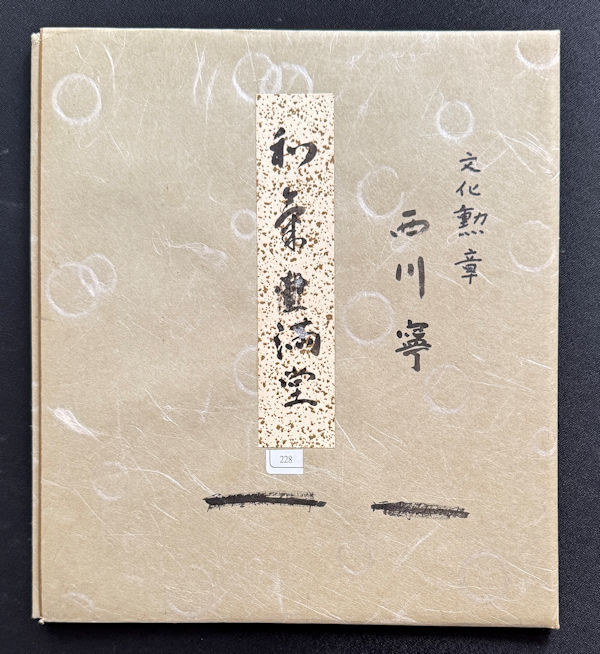 文化勲章
西川寧
和氣豊満堂
228